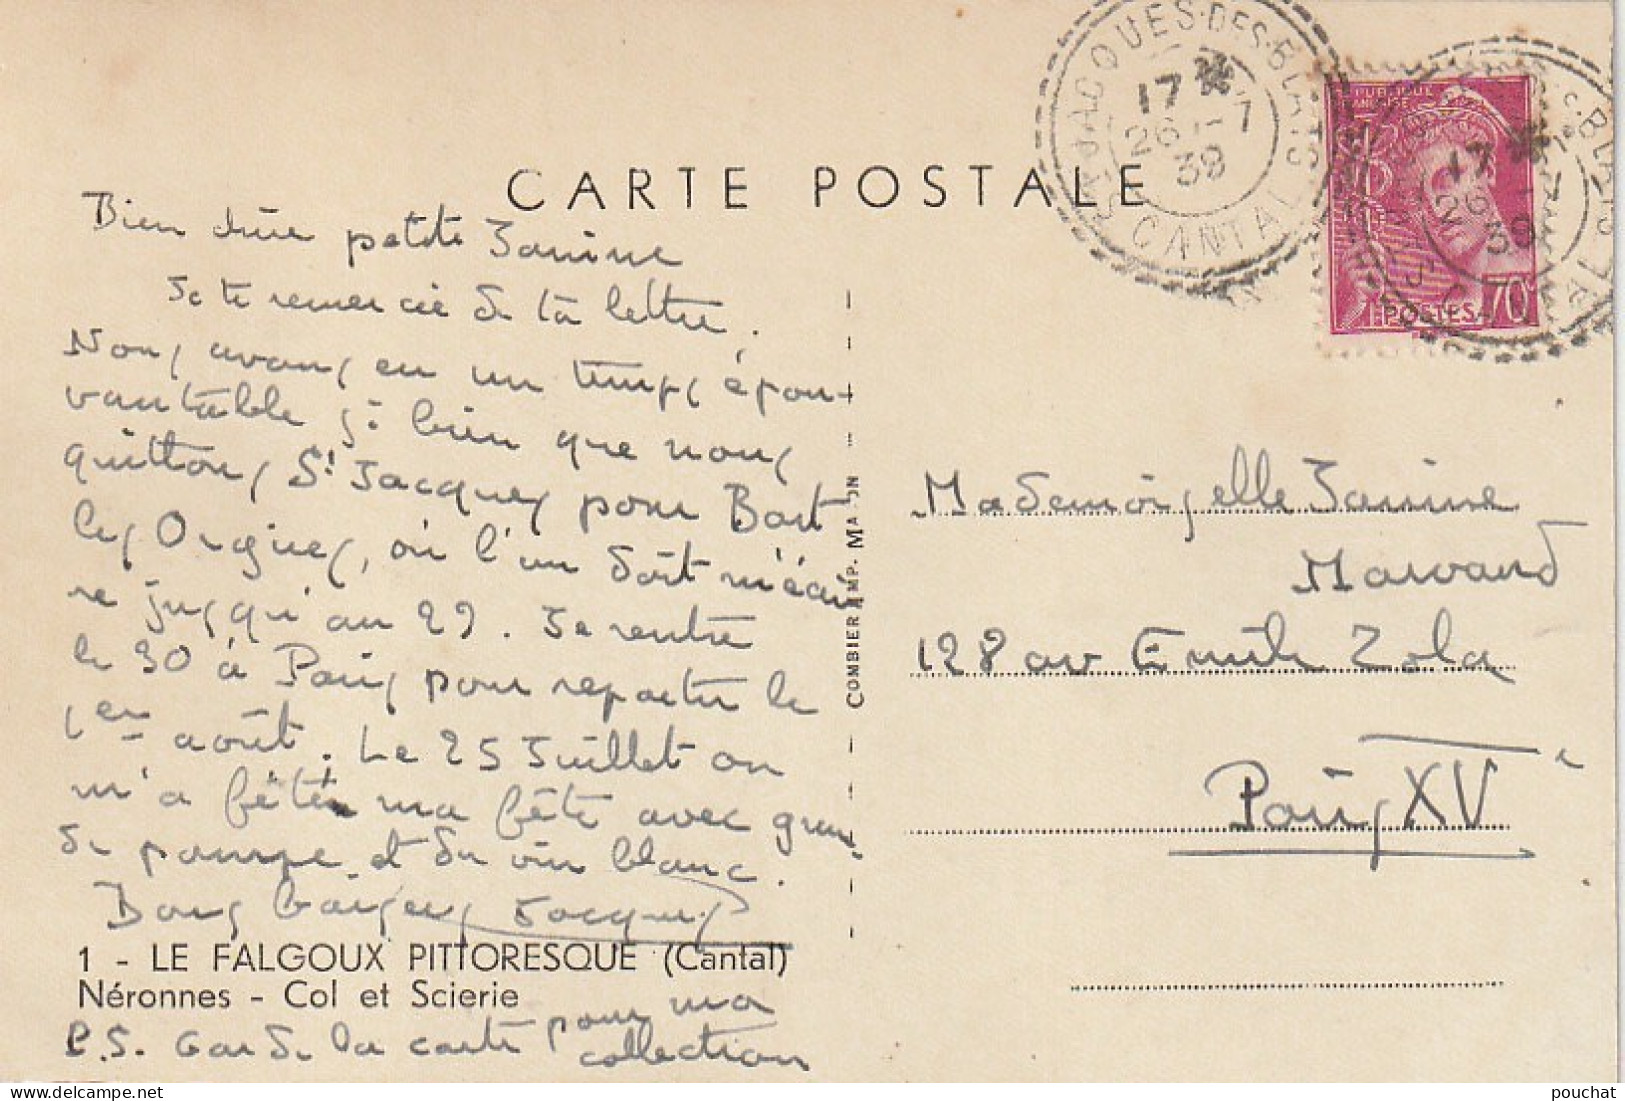 CARTE POSTALE
Bien chère petite Janine
Je te remercie de ta lettre.
Nous avons eu un temps épou-
vantable si bien que nous
quittons St Jacques pour Bort
les Orgues, où l'on doit m'écri
re jusqu'au 29. Je rentre
le 30 à Paris pour repartir le
1er août. Le 25 Juillet on
m'a fêté ma fête avec gran
de pompe et du vin blanc.
Bons baisers Jacques
1 - LE FALGOUX PITTORESQUE (Cantal)
Néronnes - Col et Scierie
P.S. Garde la carte pour ma
collection
COMBIER IMP. MA ON
ST JACQUES-DES-BLATS
CANTAL
17 *
26 - 7
39
REPUBLIQUE
FRANÇAISE
POSTES
70c
S-BLATS
17 *
7
39
Mademoiselle Janine
Marvand
128 av Emile Zola
Paris XV
pouchat